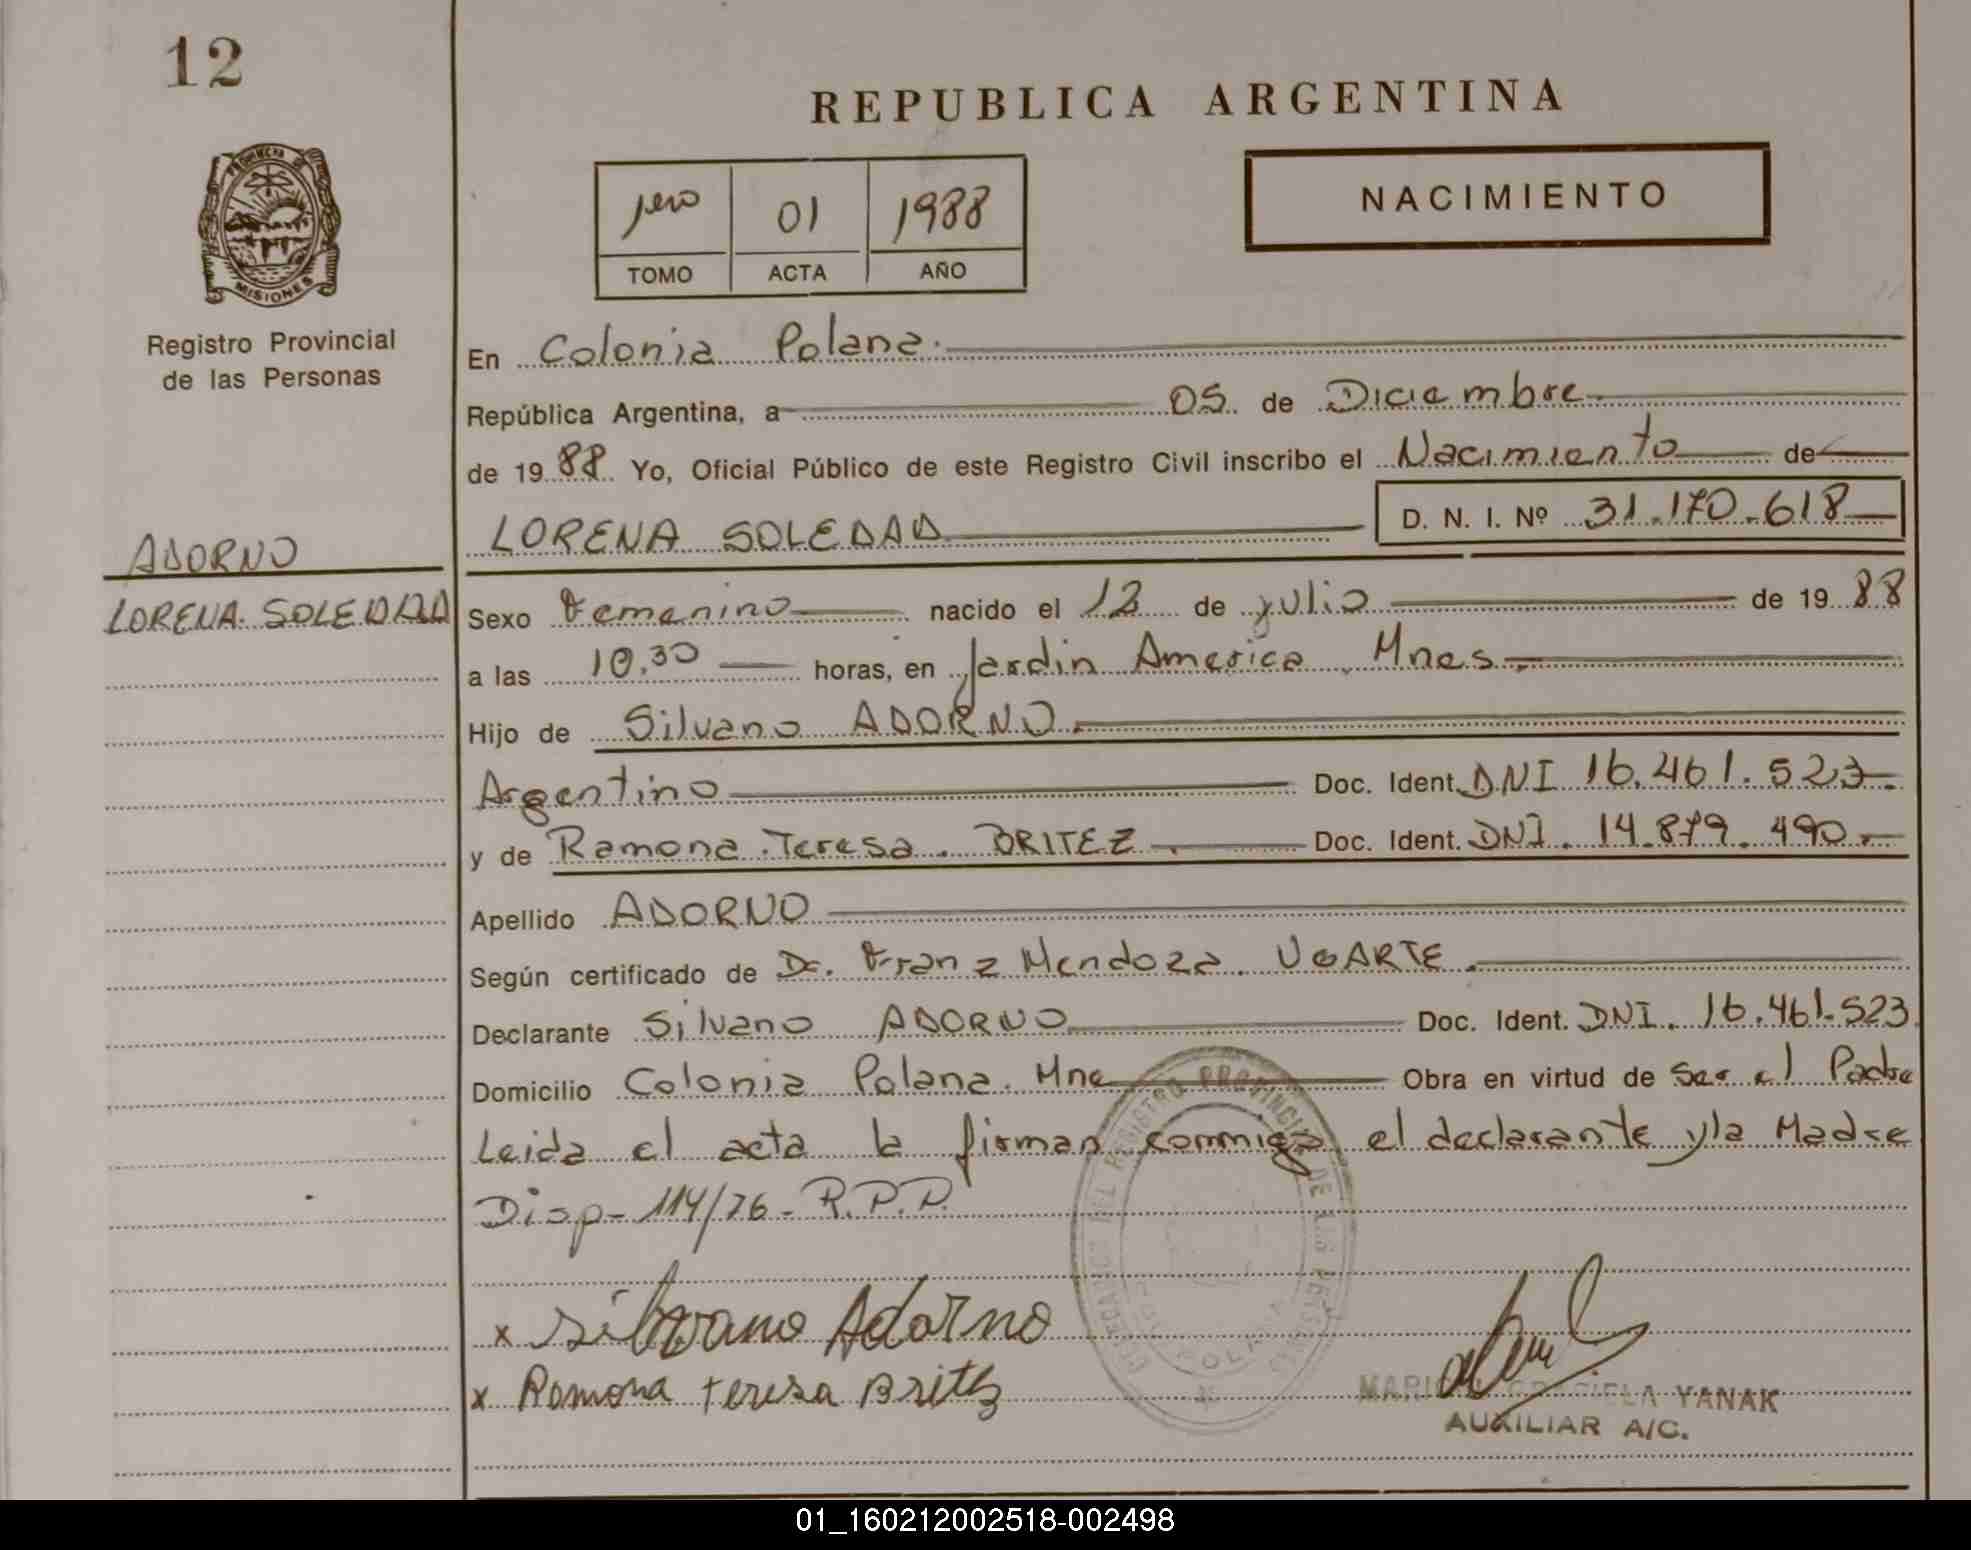 12
REPUBLICA ARGENTINA
PROVINCIA DE
MISIONES
1ero 01 1988
TOMO ACTA AÑO
NACIMIENTO
Registro Provincial
de las Personas
En Colonia Polana.
República Argentina, a 05 de Diciembre
de 1988 Yo, Oficial Público de este Registro Civil inscribo el Nacimiento de
LORENA SOLEDAD D. N. I. Nº 31.170.618
ADORNO
LORENA SOLEDAD
Sexo Femenino nacido el 12 de julio de 1988
a las 10.30 horas, en Jardin America. Mnes.
Hijo de Silvano ADORNO.
Argentino Doc. Ident. DNI 16.461.523
y de Ramona Teresa BRITEZ. Doc. Ident. DNI. 14.879.490
Apellido ADORNO
Según certificado de Dr. Franz Mendoza UGARTE.
Declarante Silvano ADORNO Doc. Ident. DNI. 16.461.523
Domicilio Colonia Polana. Mne Obra en virtud de Ser el Padre
Leida el acta la firman commigo el declarante y la Madre
Disp-114/76-R.P.P.
DEL REGISTRO PROVINCIAL DE LAS PERSONAS
POLANA
x Silvano Adorno
x Ramona teresa Britez
GRACIELA YANAK
AUXILIAR A/C.
01_160212002518-002498